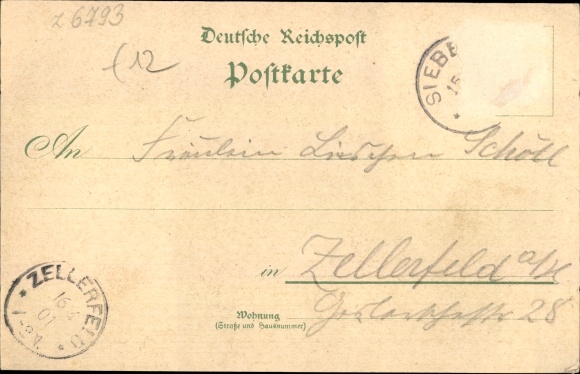 z 6793
(12
Deutsche Reichspost
Postkarte
SIEBE
15
An Fräulein Lieschen Schöll
in Zellerfeld a/H
Goslarschestr 28
Wohnung
(Straße und Hausnummer)
* ZELLERFELD *
16
01